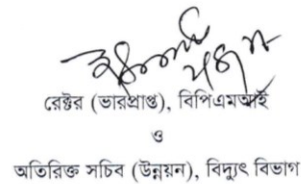 রেক্টর (ভারপ্রাপ্ত), বিপিএমআই
ও
অতিরিক্ত সচিব (উন্নয়ন), বিদ্যুৎ বিভাগ